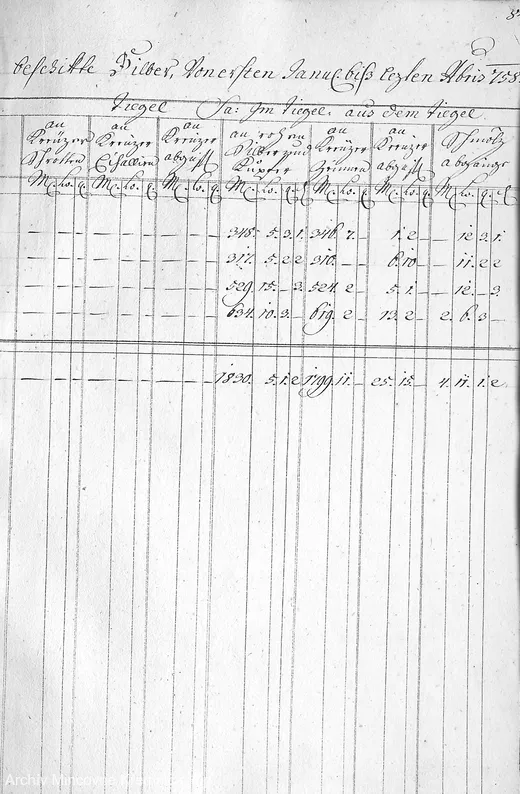 8
beschikte Silber, Von ersten Janu: biss lezten Abris 758
Tiegel Sa: Im Tiegel. aus dem Tiegel.
an an an an rohem an an Schmölz
Kreüzer Kreüzer Kreüzer Silber und Kreüzer Kreüzer abgänge
Schrotten abguss Kupfer abguss
M: Lo. q. M: Lo. q. M: Lo. q. M: Lo. q. M: Lo. q. M: Lo. q. M: Lo. q.
— — — — — — — — — 348. 5. 3. 1. 346. 7. — 1. 2 — — 12. 3. 1.
— — — — — — — — — 317. 5. 2. 2 310. — — 6. 10 — — 11. 2. 2
— — — — — — — — — 529. 15. — 3. 524. 2 — 5. 1. — — 12. — 3.
— — — — — — — — — 634. 10. 3. — 619. 2 — 13. 2 — 2. 6. 3 —
— — — — — — — — — 1830. 5. 1. 2 1799. 11. — 25. 15. — 4. 11. 1. 2.
Archiv Mincovne